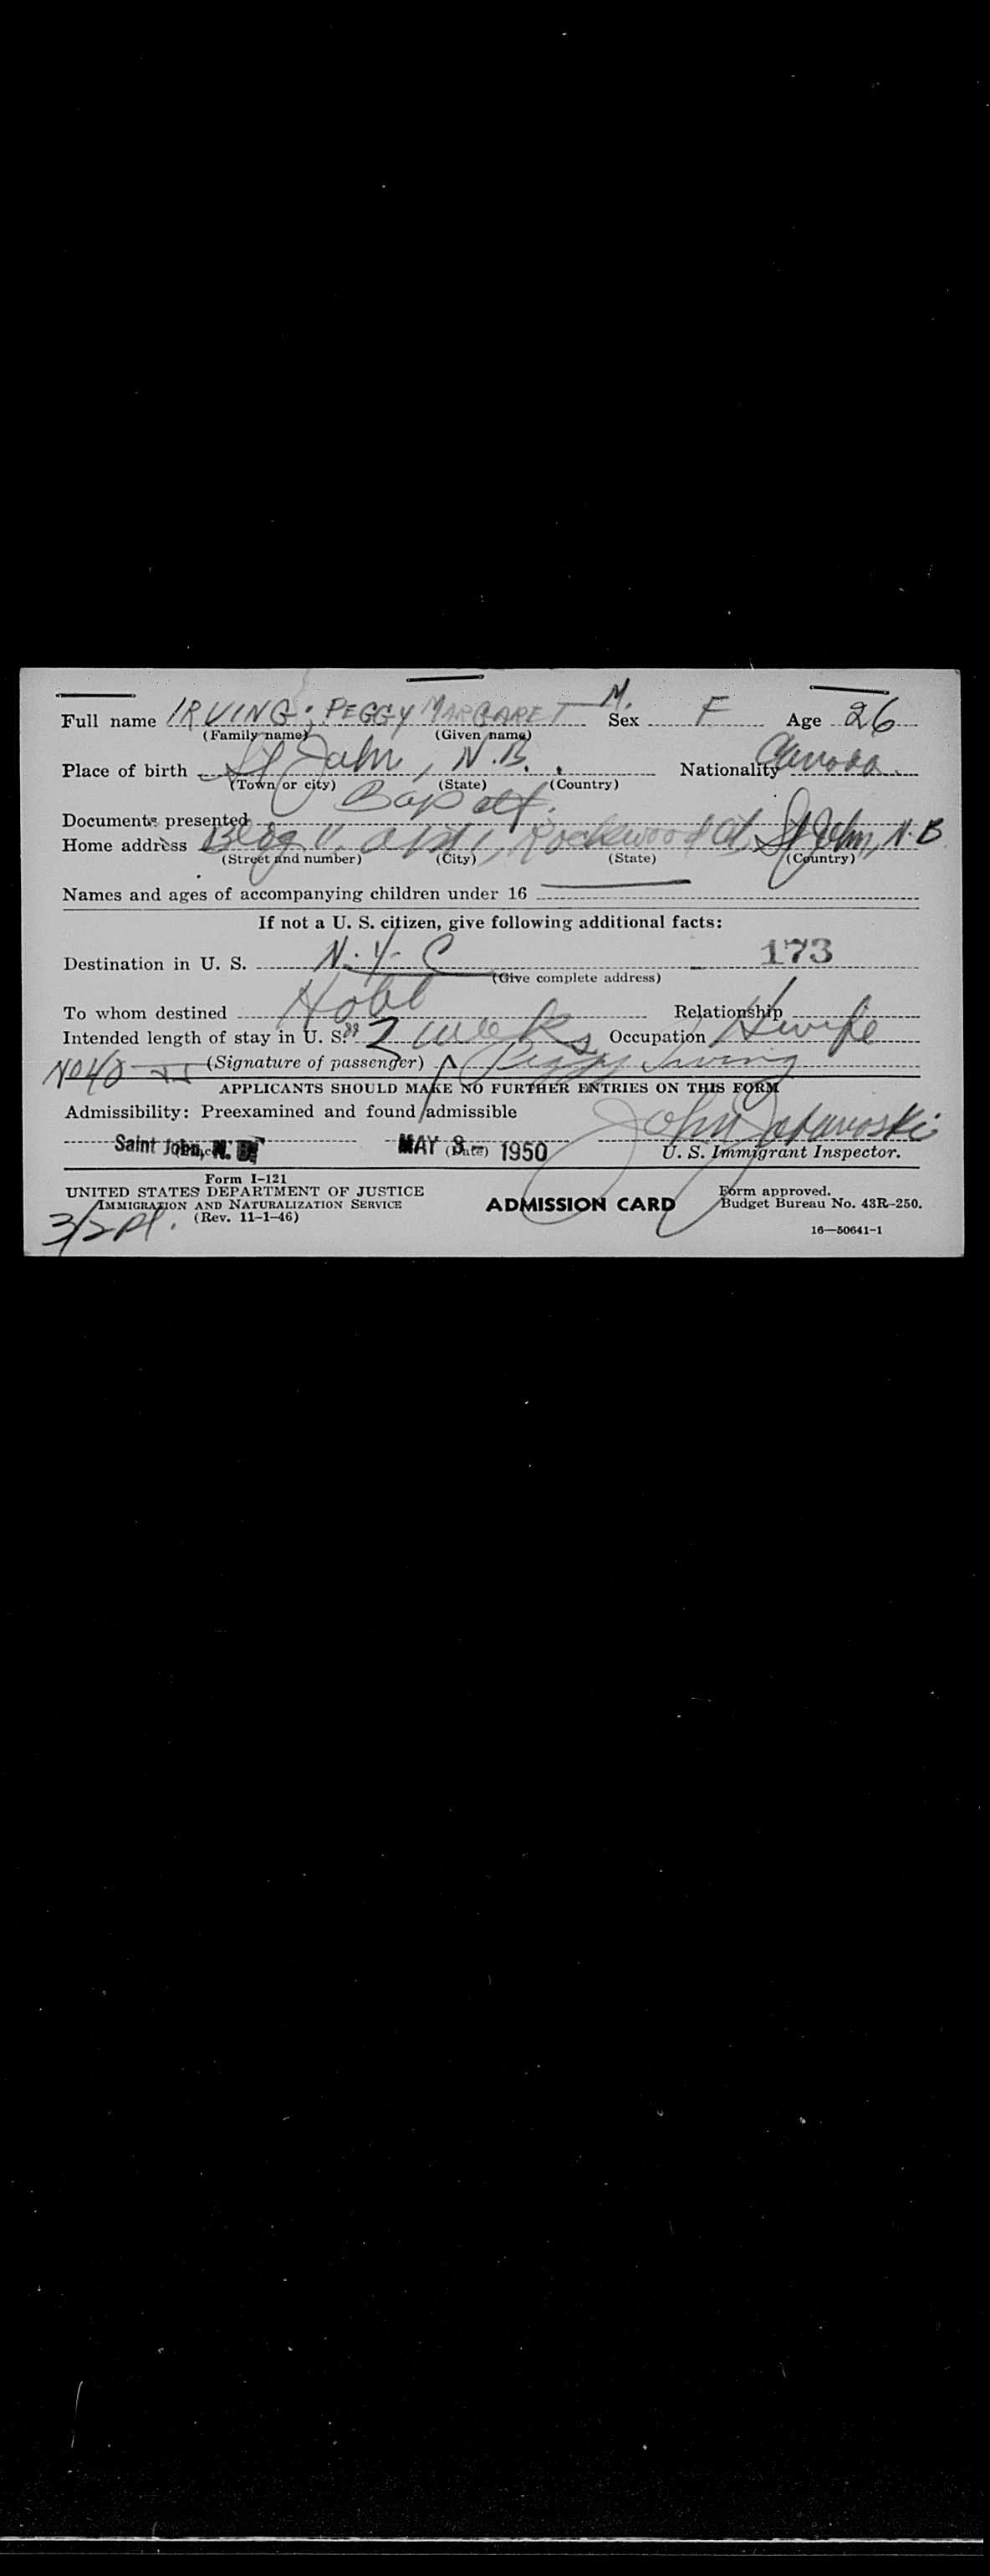 M.
Full name IRVING; PEGGY MARGARET Sex F Age 26
(Family name) (Given name)
Place of birth St John, N.B. Nationality Canada
(Town or city) (State) (Country)
Documents presented Bap
Home address Bldg Apt 1, Rockwood Ct, St John, N.B
(Street and number) (City) (State) (Country)
Names and ages of accompanying children under 16
If not a U. S. citizen, give following additional facts:
173
Destination in U. S. N.Y.C
(Give complete address)
To whom destined Hotel Relationship
Intended length of stay in U. S. 2 weeks Occupation Hwife
(Signature of passenger) Peggy Irving
APPLICANTS SHOULD MAKE NO FURTHER ENTRIES ON THIS FORM
Admissibility: Preexamined and found admissible
Saint John, N. B. MAY 3 - 1950 John
(Date) U. S. Immigrant Inspector.
Form I-121
UNITED STATES DEPARTMENT OF JUSTICE
IMMIGRATION AND NATURALIZATION SERVICE
(Rev. 11-1-46)
ADMISSION CARD
Form approved.
Budget Bureau No. 43R-250.
16—50641-1